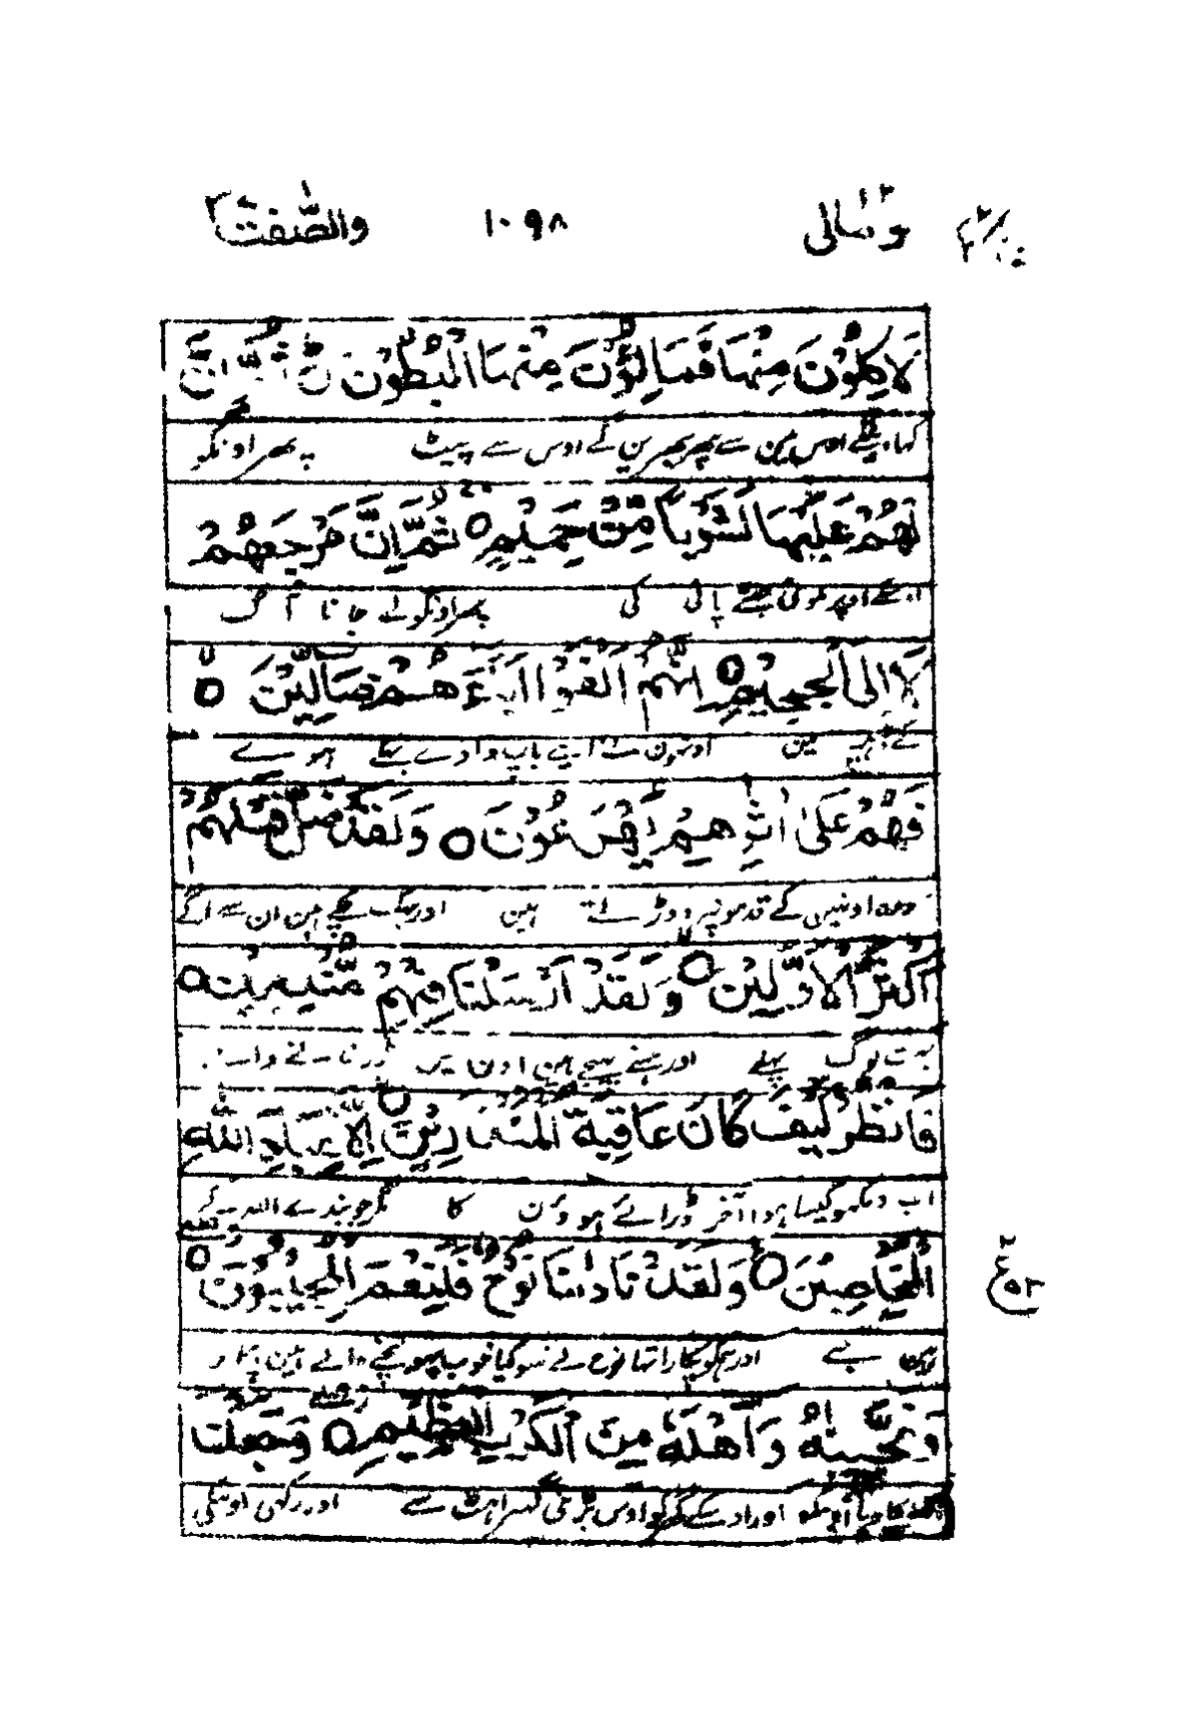 ومالی ۲۳ ۱۰۹۸ والصّٰفّٰت
لَاٰكِلُوْنَ مِنْهَا فَمَالِـُٔوْنَ مِنْهَا الْبُطُوْنَ ثُمَّ اِنَّ
اوس مین سے پھر بھرین گے اوس سے پیٹ پھر اونکو
لَهُمْ عَلَيْهَا لَشَوْبًا مِّنْ حَمِيْمٍ ثُمَّ اِنَّ مَرْجِعَهُمْ
اوپر ملونی جلتے پانی کی پھر اونکو لے جانا آگ
لَا۟اِلَى الْجَحِيْمِ اِنَّهُمْ اَلْفَوْا اٰبَآءَهُمْ ضَآلِّيْنَ
کے مین اونہون نے اپنے باپ دادے بہکے ہوے
فَهُمْ عَلٰٓى اٰثٰرِهِمْ يُهْرَعُوْنَ وَلَقَدْ ضَلَّ قَبْلَهُمْ
وہ اونہیں کے قدمونپہ دوڑتے ہین اور بہک چکے ہین ان سے آگے
اَكْثَرُ الْاَوَّلِيْنَ وَلَقَدْ اَرْسَلْنَا فِيْهِمْ مُّنْذِرِيْنَ
بہت لوگ پہلے اور ہمنے بھیجے ہین اون مین ڈر سنانے والے
فَانْظُرْ كَيْفَ كَانَ عَاقِبَةُ الْمُنْذَرِيْنَ اِلَّا عِبَادَ اللّٰهِ
اب دیکھ کیسا ہوا آخر ڈرائے ہوؤن کا مگر جو بندے اللہ کے
الْمُخْلَصِيْنَ وَلَقَدْ نَادٰىنَا نُوْحٌ فَلَنِعْمَ الْمُجِيْبُوْنَ
اور ہمکو پکارا تھا نوح نے سو کیا خوب پہونچنے والے ہین پکار
وَنَجَّيْنٰهُ وَاَهْلَهٗ مِنَ الْكَرْبِ الْعَظِيْمِ وَجَعَلْنَا
اور اوسکے گھر کو اوس بڑی گھبراہٹ سے اور رکھی اوسکی